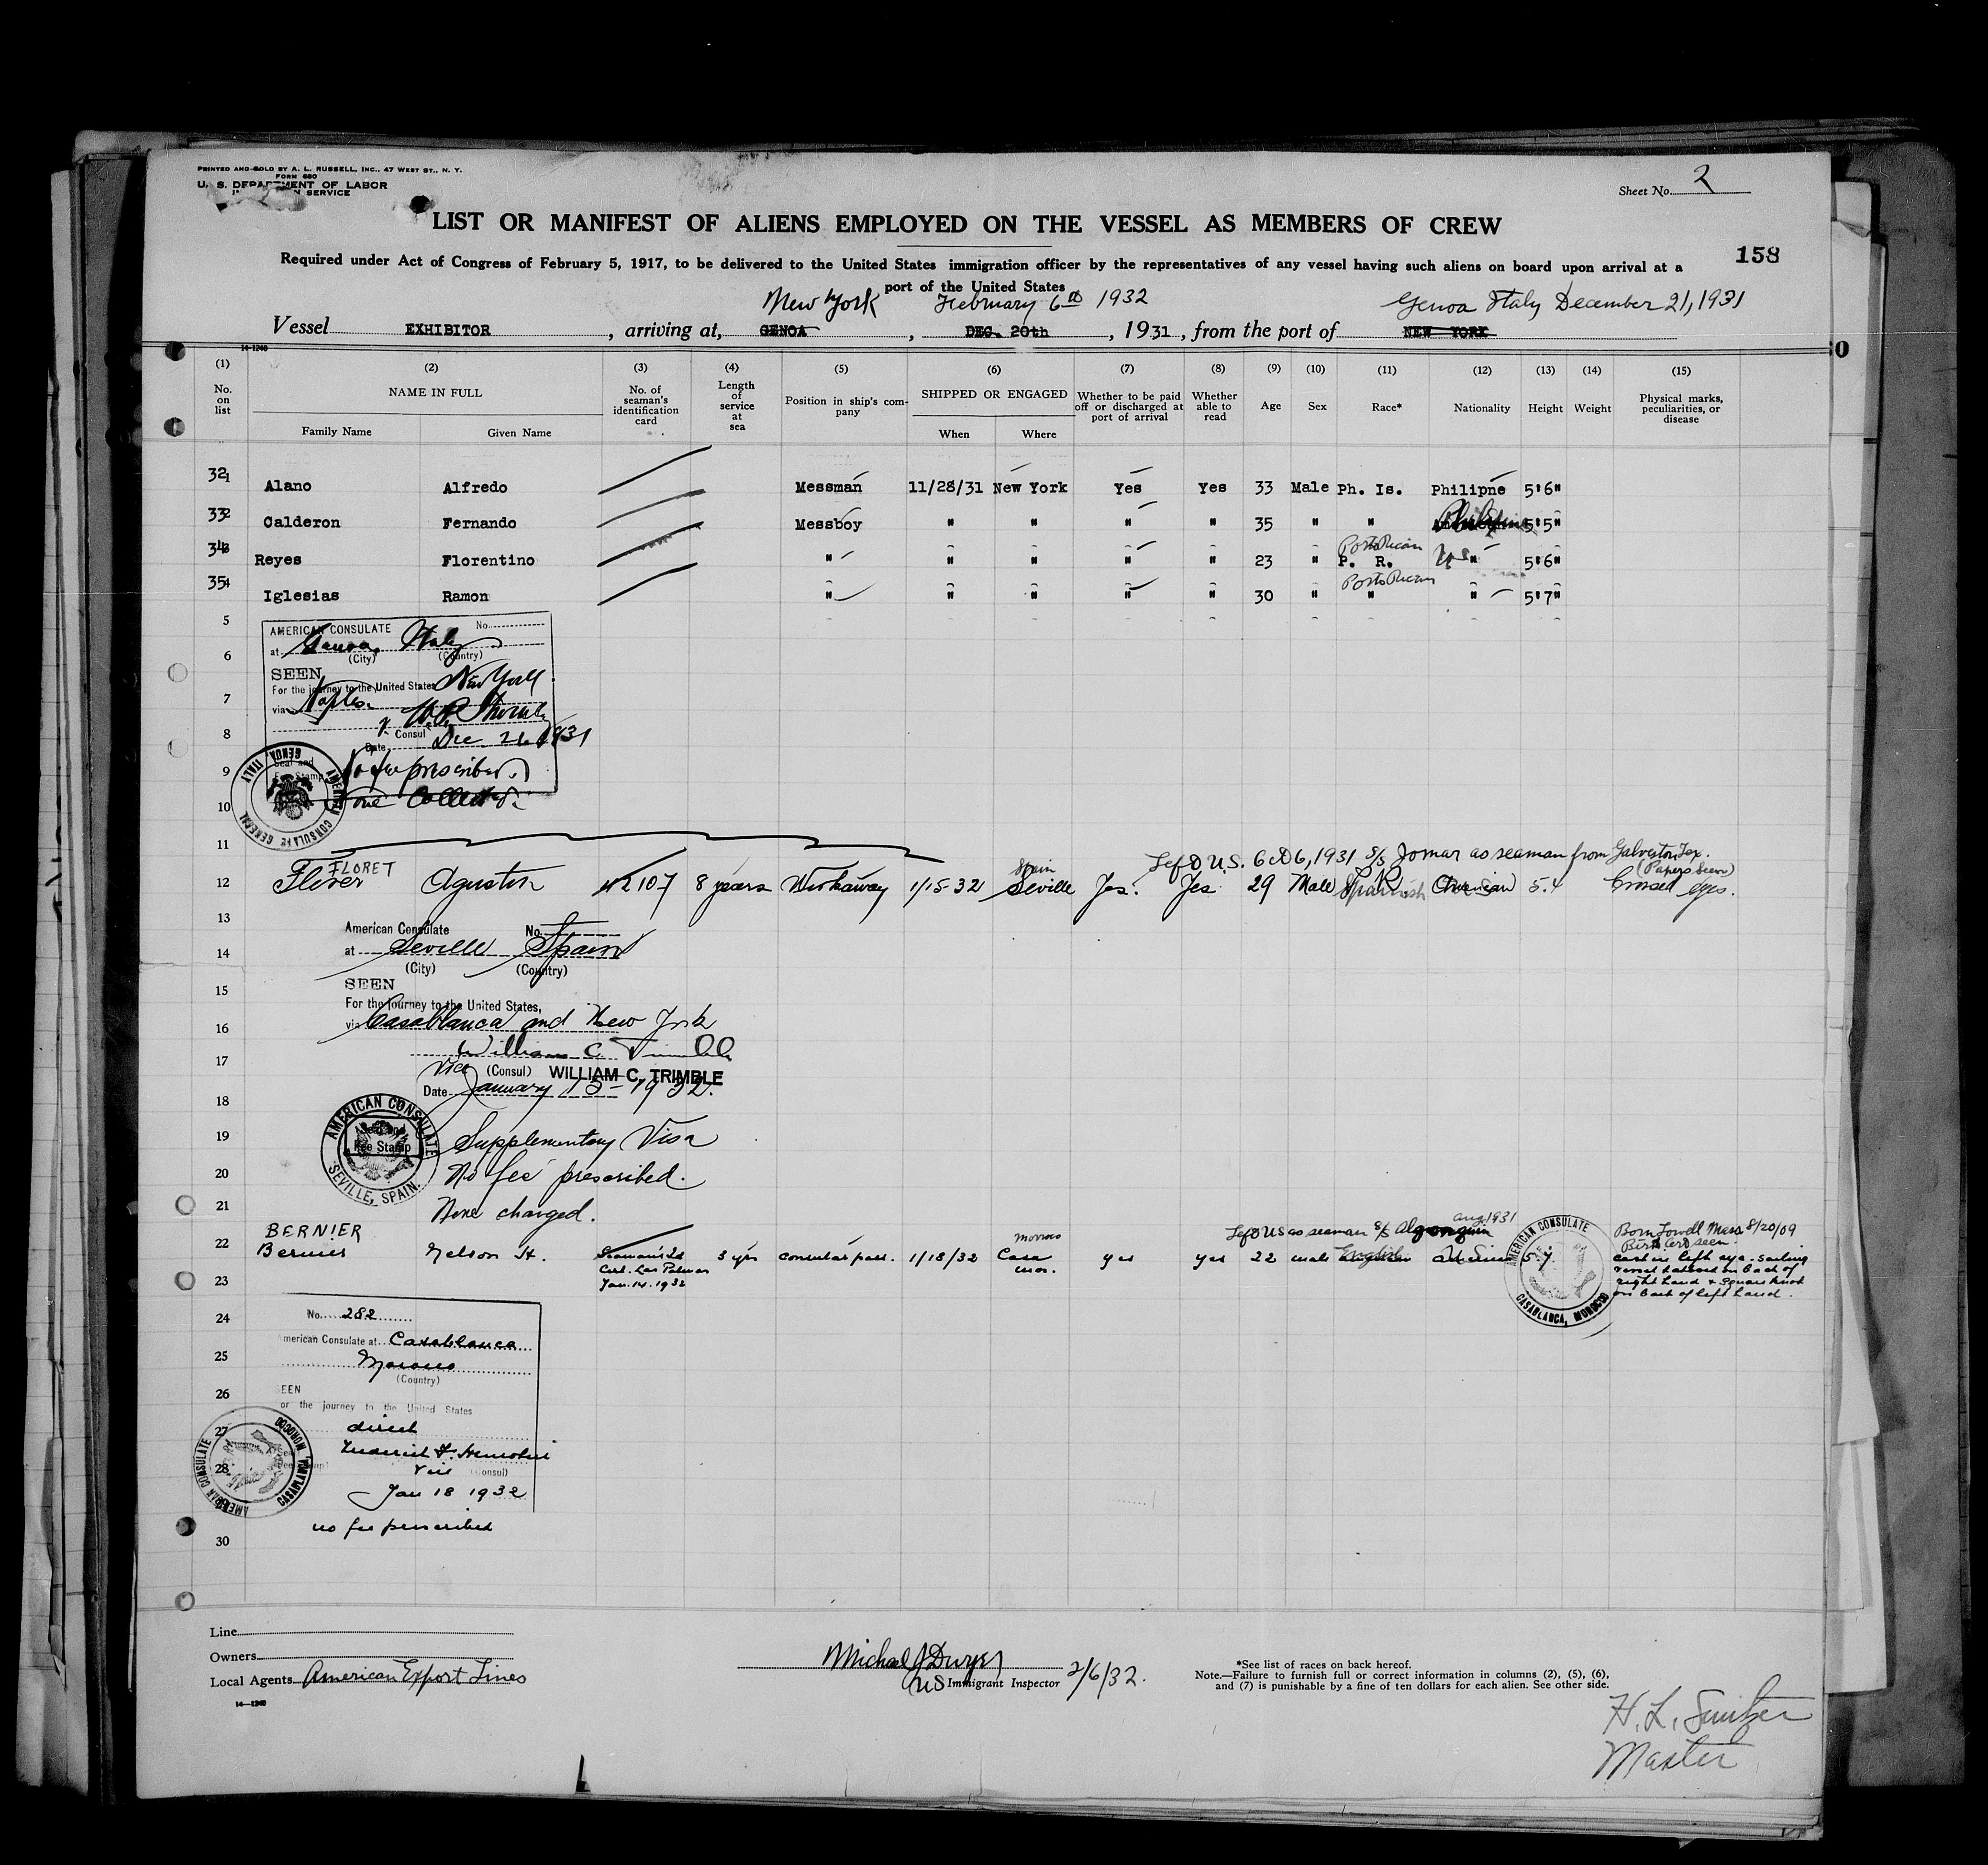 PRINTED AND SOLD BY A. L. RUSSELL, INC., 47 WEST ST., N. Y.
FORM 680
U. S. DEPARTMENT OF LABOR
SERVICE
Sheet No. 2
LIST OR MANIFEST OF ALIENS EMPLOYED ON THE VESSEL AS MEMBERS OF CREW
158
Required under Act of Congress of February 5, 1917, to be delivered to the United States immigration officer by the representatives of any vessel having such aliens on board upon arrival at a
port of the United States
New York February 6th 1932 Genoa Italy December 21, 1931
Vessel EXHIBITOR, arriving at, GENOA, DEC. 20th, 1931, from the port of NEW YORK
14-1240
(1) (2) (3) (4) (5) (6) (7) (8) (9) (10) (11) (12) (13) (14) (15)
No. on list
NAME IN FULL
Family Name Given Name
No. of seaman's identification card
Length of service at sea
Position in ship's company
SHIPPED OR ENGAGED
When Where
Whether to be paid off or discharged at port of arrival
Whether able to read
Age Sex Race* Nationality Height Weight
Physical marks, peculiarities, or disease
32 1 Alano Alfredo Messman 11/28/31 New York Yes Yes 33 Male Ph. Is. Philipne 5'6"
33 2 Calderon Fernando Messboy " " " " 35 " " Philipine 5'5"
Porto Rican
34 3 Reyes Florentino " " " " " 23 " P. R. US " 5'6"
Porto Rican
35 4 Iglesias Ramon " " " " " 30 " " " 5'7"
5
AMERICAN CONSULATE No.
6 at Genoa, Italy
(City) (Country)
SEEN
For the journey to the United States New York
7 via Naples
8 Consul
Date Dec. 21 1931
9 Seal and Fee Stamp
No fee prescribed
10 None Collected
AMERICAN CONSULATE GENERAL GENOA ITALY
11
Left U.S. Oct 6, 1931 S/S Jomar as seaman from Galveston Tex.
(Papers seen)
FLORET
Spain
12 Florer Agustin 2107 8 years Workaway 1/15-32 Seville Yes. Yes 29 Male Spanish 5.4 Crossed eyes.
13
American Consulate No.
14 at Seville Spain
(City) (Country)
15 SEEN
For the journey to the United States,
16 via Casablanca and New York
17 William C. Trimble
Vice (Consul) WILLIAM C. TRIMBLE
Date January 15-1932.
18
Seal and Fee Stamp
AMERICAN CONSULATE SEVILLE, SPAIN.
19 Supplementary Visa
20 No fee prescribed.
21 None charged.
Left US as seaman S/S Algonquin Aug 1931
BERNIER
22 Bernier Nelson H. Seaman's Id Cert. Las Palmas Jan. 14. 1932 3 yrs consular pass. 1/18/32 Casa mor. yes yes 22 male 5.7.
Morocco
AMERICAN CONSULATE CASABLANCA, MOROCCO
Born Lowell Mass 8/20/09
Birth Cert seen.
cast in left eye - sailing
vessel tatooed on back of
right hand & square knot
on back of left hand.
23
24 No. 282
American Consulate at Casablanca
25 Morocco
(Country)
26 SEEN
or the journey to the United States
27 direct
28 Vice (Consul)
Jan 18 1932
AMERICAN CONSULATE CASABLANCA, MOROCCO
no fee prescribed
30
Line
Owners
Local Agents American Export Lines
14-1240
Michael J Dwyer
US Immigrant Inspector 2/6/32.
*See list of races on back hereof.
Note.—Failure to furnish full or correct information in columns (2), (5), (6),
and (7) is punishable by a fine of ten dollars for each alien. See other side.
H. L.
Master